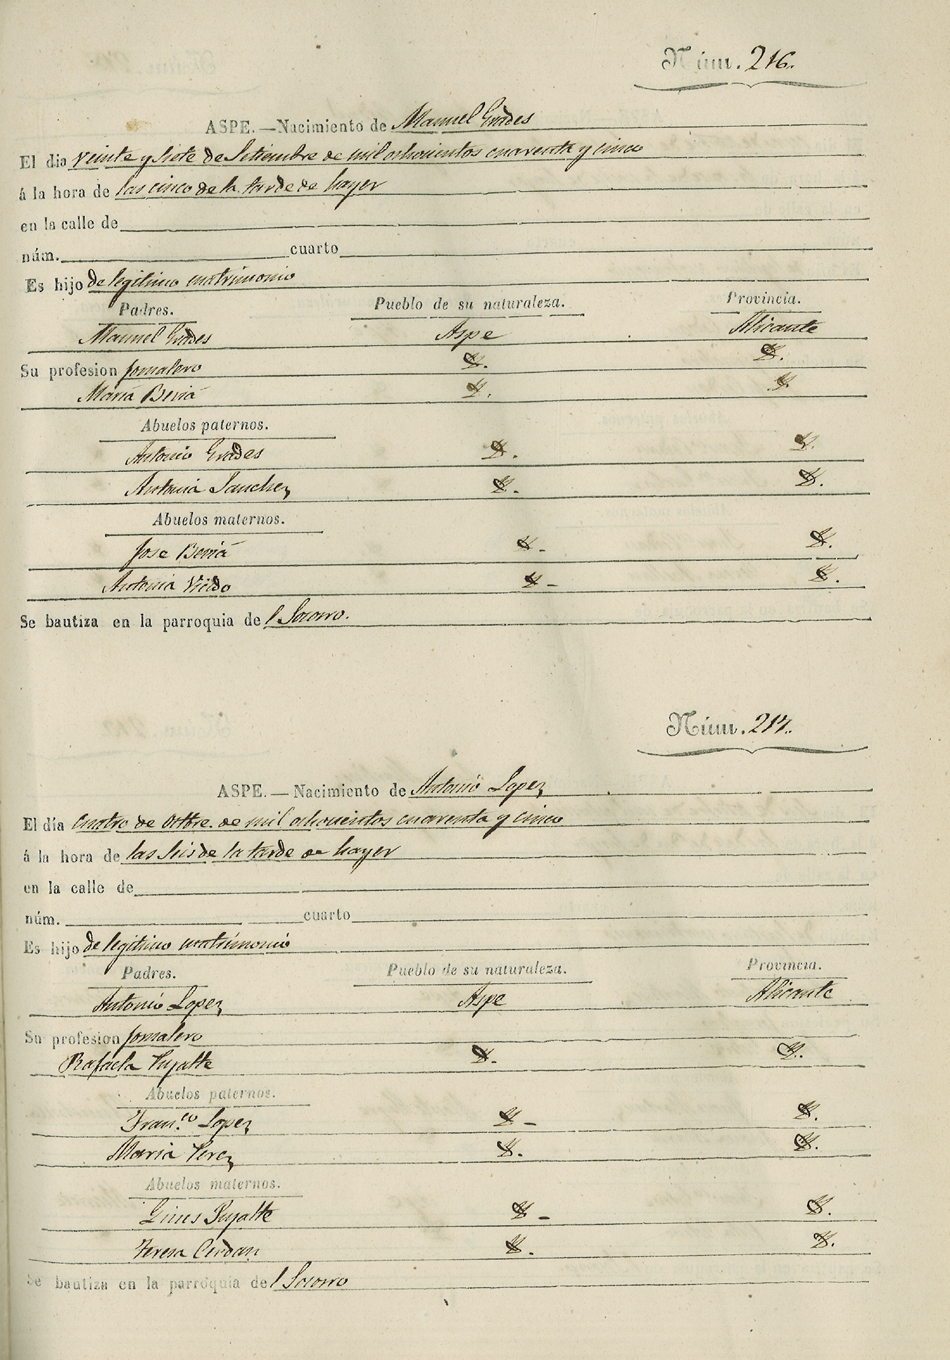 Núm. 216.
ASPE.—Nacimiento de Manuel Grades
El dia veinte y Siete de Setiembre de mil ochocientos cuarenta y cinco
á la hora de las cinco de la tarde de hayer
en la calle de
núm. cuarto
Es hijo de legitimo matrimonio
Padres. Pueblo de su naturaleza. Provincia.
Manuel Grades Aspe Alicante
Su profesion jornalero
Maria Beviá
Abuelos paternos.
Antonio Grades
Antonia Sanchez
Abuelos maternos.
Jose Beviá
Antonia
Se bautiza en la parroquia del Socorro.
Núm. 217.
ASPE.—Nacimiento de Antonio Lopez
El día cuatro de Octbre. de mil ochocientos cuarenta y cinco
á la hora de las Seis de la tarde de hayer
en la calle de
núm. cuarto
Es hijo de legitimo matrimonio
Padres. Pueblo de su naturaleza. Provincia.
Antonio Lopez Aspe Alicante
Su profesion jornalero
Rafaela Pujalte
Abuelos paternos.
Fran.co Lopez
Maria Perez
Abuelos maternos.
Gines Pujalte
Teresa Cerdan
Se bautiza en la parroquia del Socorro